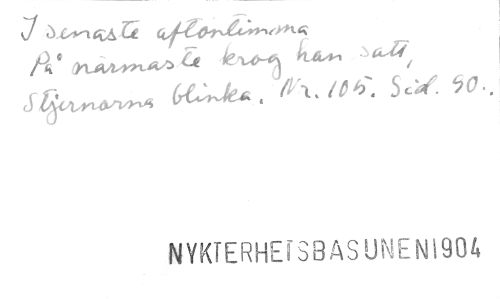 I senaste aftontimma
På närmaste krog han satt,
Stjernorna blinka. Nr. 105. Sid. 90..
NYKTERHETSBASUNEN1904